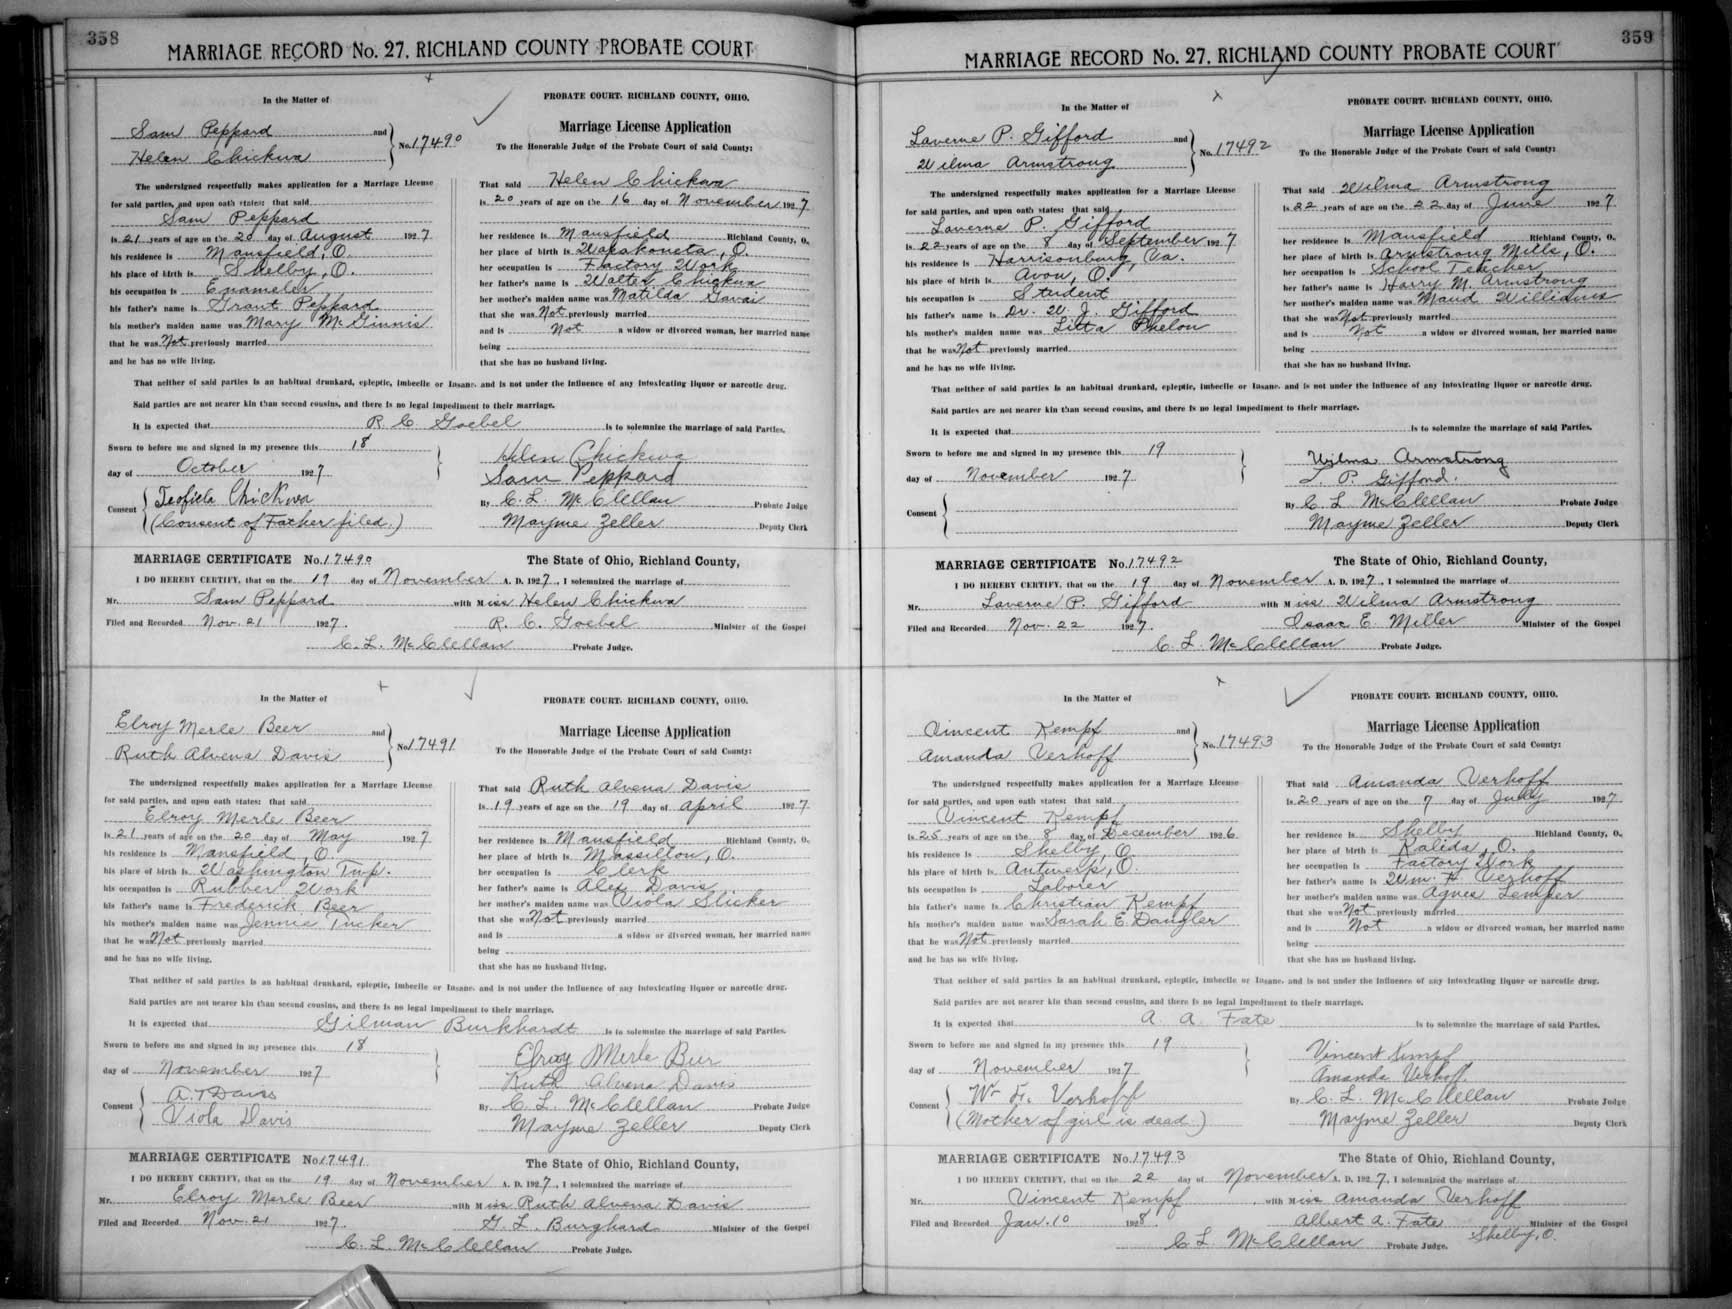 358
MARRIAGE RECORD No. 27, RICHLAND COUNTY PROBATE COURT
In the Matter of
Sam Peppard and
Helen Chickwa
No. 17490
The undersigned respectfully makes application for a Marriage License
for said parties, and upon oath states: that said
Sam Peppard
is 21 years of age on the 20 day of August 1927
his residence is Mansfield, O.
his place of birth is Shelby, O.
his occupation is Enameler
his father's name is Grant Peppard
his mother's maiden name was Mary McGinnis
that he was Not previously married
and he has no wife living.
PROBATE COURT, RICHLAND COUNTY, OHIO.
Marriage License Application
To the Honorable Judge of the Probate Court of said County:
That said Helen Chickwa
is 20 years of age on the 16 day of November 1927
her residence is Mansfield Richland County, O.
her place of birth is Wapakoneta, O.
her occupation is Factory Work
her father's name is Walter Chickwa
her mother's maiden name was Matilda Gavai
that she was Not previously married
and is Not a widow or divorced woman, her married name
being
that she has no husband living.
That neither of said parties is an habitual drunkard, epileptic, imbecile or insane, and is not under the influence of any intoxicating liquor or narcotic drug.
Said parties are not nearer kin than second cousins, and there is no legal impediment to their marriage.
It is expected that R. C. Goebel is to solemnize the marriage of said Parties.
Sworn to before me and signed in my presence this 18
day of October 1927
Consent Teofiela Chickwa
(Consent of Father filed.)
Helen Chickwa
Sam Peppard
By C. L. McClellan Probate Judge
Mayme Zeller Deputy Clerk
MARRIAGE CERTIFICATE No. 17490 The State of Ohio, Richland County,
I DO HEREBY CERTIFY, that on the 19 day of November A. D. 1927, I solemnized the marriage of
Mr. Sam Peppard with Miss Helen Chickwa
Filed and Recorded Nov. 21 1927. R. C. Goebel Minister of the Gospel
C. L. McClellan Probate Judge.
In the Matter of
Elroy Merle Beer and
Ruth Alvena Davis
No. 17491
The undersigned respectfully makes application for a Marriage License
for said parties, and upon oath states: that said
Elroy Merle Beer
is 21 years of age on the 20 day of May 1927
his residence is Mansfield, O.
his place of birth is Washington Twp.
his occupation is Rubber Work
his father's name is Frederick Beer
his mother's maiden name was Jennie Tucker
that he was Not previously married
and he has no wife living.
PROBATE COURT, RICHLAND COUNTY, OHIO.
Marriage License Application
To the Honorable Judge of the Probate Court of said County:
That said Ruth Alvena Davis
is 19 years of age on the 19 day of April 1927
her residence is Mansfield Richland County, O.
her place of birth is Massillon, O.
her occupation is Clerk
her father's name is Alex Davis
her mother's maiden name was Viola Slicker
that she was Not previously married
and is a widow or divorced woman, her married name
being
that she has no husband living.
That neither of said parties is an habitual drunkard, epileptic, imbecile or insane, and is not under the influence of any intoxicating liquor or narcotic drug.
Said parties are not nearer kin than second cousins, and there is no legal impediment to their marriage.
It is expected that Gilman Burkhardt is to solemnize the marriage of said Parties.
Sworn to before me and signed in my presence this 18
day of November 1927
Consent A. T. Davis
Viola Davis
Elroy Merle Beer
Ruth Alvena Davis
By C. L. McClellan Probate Judge
Mayme Zeller Deputy Clerk
MARRIAGE CERTIFICATE No. 17491 The State of Ohio, Richland County,
I DO HEREBY CERTIFY, that on the 19 day of November A. D. 1927, I solemnized the marriage of
Mr. Elroy Merle Beer with Miss Ruth Alvena Davis
Filed and Recorded Nov. 21 1927. G. L. Burghard Minister of the Gospel
C. L. McClellan Probate Judge.
359
MARRIAGE RECORD No. 27, RICHLAND COUNTY PROBATE COURT
In the Matter of
Laverne P. Gifford and
Wilma Armstrong
No. 17492
The undersigned respectfully makes application for a Marriage License
for said parties, and upon oath states: that said
Laverne P. Gifford
is 22 years of age on the 8 day of September 1927
his residence is Harrisonburg, Va.
his place of birth is Avon, O.
his occupation is Student
his father's name is Dr. W. J. Gifford
his mother's maiden name was Litta Phelon
that he was Not previously married
and he has no wife living.
PROBATE COURT, RICHLAND COUNTY, OHIO.
Marriage License Application
To the Honorable Judge of the Probate Court of said County:
That said Wilma Armstrong
is 22 years of age on the 22 day of June 1927
her residence is Mansfield Richland County, O.
her place of birth is Armstrong Mills, O.
her occupation is School Teacher
her father's name is Harry M. Armstrong
her mother's maiden name was Maud Williams
that she was Not previously married
and is Not a widow or divorced woman, her married name
being
that she has no husband living.
That neither of said parties is an habitual drunkard, epileptic, imbecile or insane, and is not under the influence of any intoxicating liquor or narcotic drug.
Said parties are not nearer kin than second cousins, and there is no legal impediment to their marriage.
It is expected that is to solemnize the marriage of said Parties.
Sworn to before me and signed in my presence this 19
day of November 1927
Consent
Wilma Armstrong
L. P. Gifford.
By C L McClellan Probate Judge
Mayme Zeller Deputy Clerk
MARRIAGE CERTIFICATE No. 17492 The State of Ohio, Richland County,
I DO HEREBY CERTIFY, that on the 19 day of November A. D. 1927, I solemnized the marriage of
Mr. Laverne P. Gifford with Miss Wilma Armstrong
Filed and Recorded Nov. 22 1927. Isaac E. Miller Minister of the Gospel
C. L. McClellan Probate Judge.
In the Matter of
Vincent Kempf and
Amanda Verhoff
No. 17493
The undersigned respectfully makes application for a Marriage License
for said parties, and upon oath states: that said
Vincent Kempf
is 25 years of age on the 8 day of December 1926
his residence is Shelby, O.
his place of birth is Antwerp, O.
his occupation is Laborer
his father's name is Christian Kempf
his mother's maiden name was Sarah E. Dangler
that he was Not previously married
and he has no wife living.
PROBATE COURT, RICHLAND COUNTY, OHIO.
Marriage License Application
To the Honorable Judge of the Probate Court of said County:
That said Amanda Verhoff
is 20 years of age on the 7 day of July 1927
her residence is Shelby Richland County, O.
her place of birth is Kalida, O.
her occupation is Factory Work
her father's name is Wm. F. Verhoff
her mother's maiden name was Agnes Lemper
that she was Not previously married
and is Not a widow or divorced woman, her married name
being
that she has no husband living.
That neither of said parties is an habitual drunkard, epileptic, imbecile or insane, and is not under the influence of any intoxicating liquor or narcotic drug.
Said parties are not nearer kin than second cousins, and there is no legal impediment to their marriage.
It is expected that A. A. Fate is to solemnize the marriage of said Parties.
Sworn to before me and signed in my presence this 19
day of November 1927
Consent Wm F. Verhoff
(Mother of girl is dead.)
Vincent Kempf
Amanda Verhoff
By C. L. McClellan Probate Judge
Mayme Zeller Deputy Clerk
MARRIAGE CERTIFICATE No. 17493 The State of Ohio, Richland County,
I DO HEREBY CERTIFY, that on the 22 day of November A. D. 1927, I solemnized the marriage of
Mr. Vincent Kempf with Miss Amanda Verhoff
Filed and Recorded Jan. 10 1928. Albert A. Fate Minister of the Gospel
Shelby, O.
C L McClellan Probate Judge.